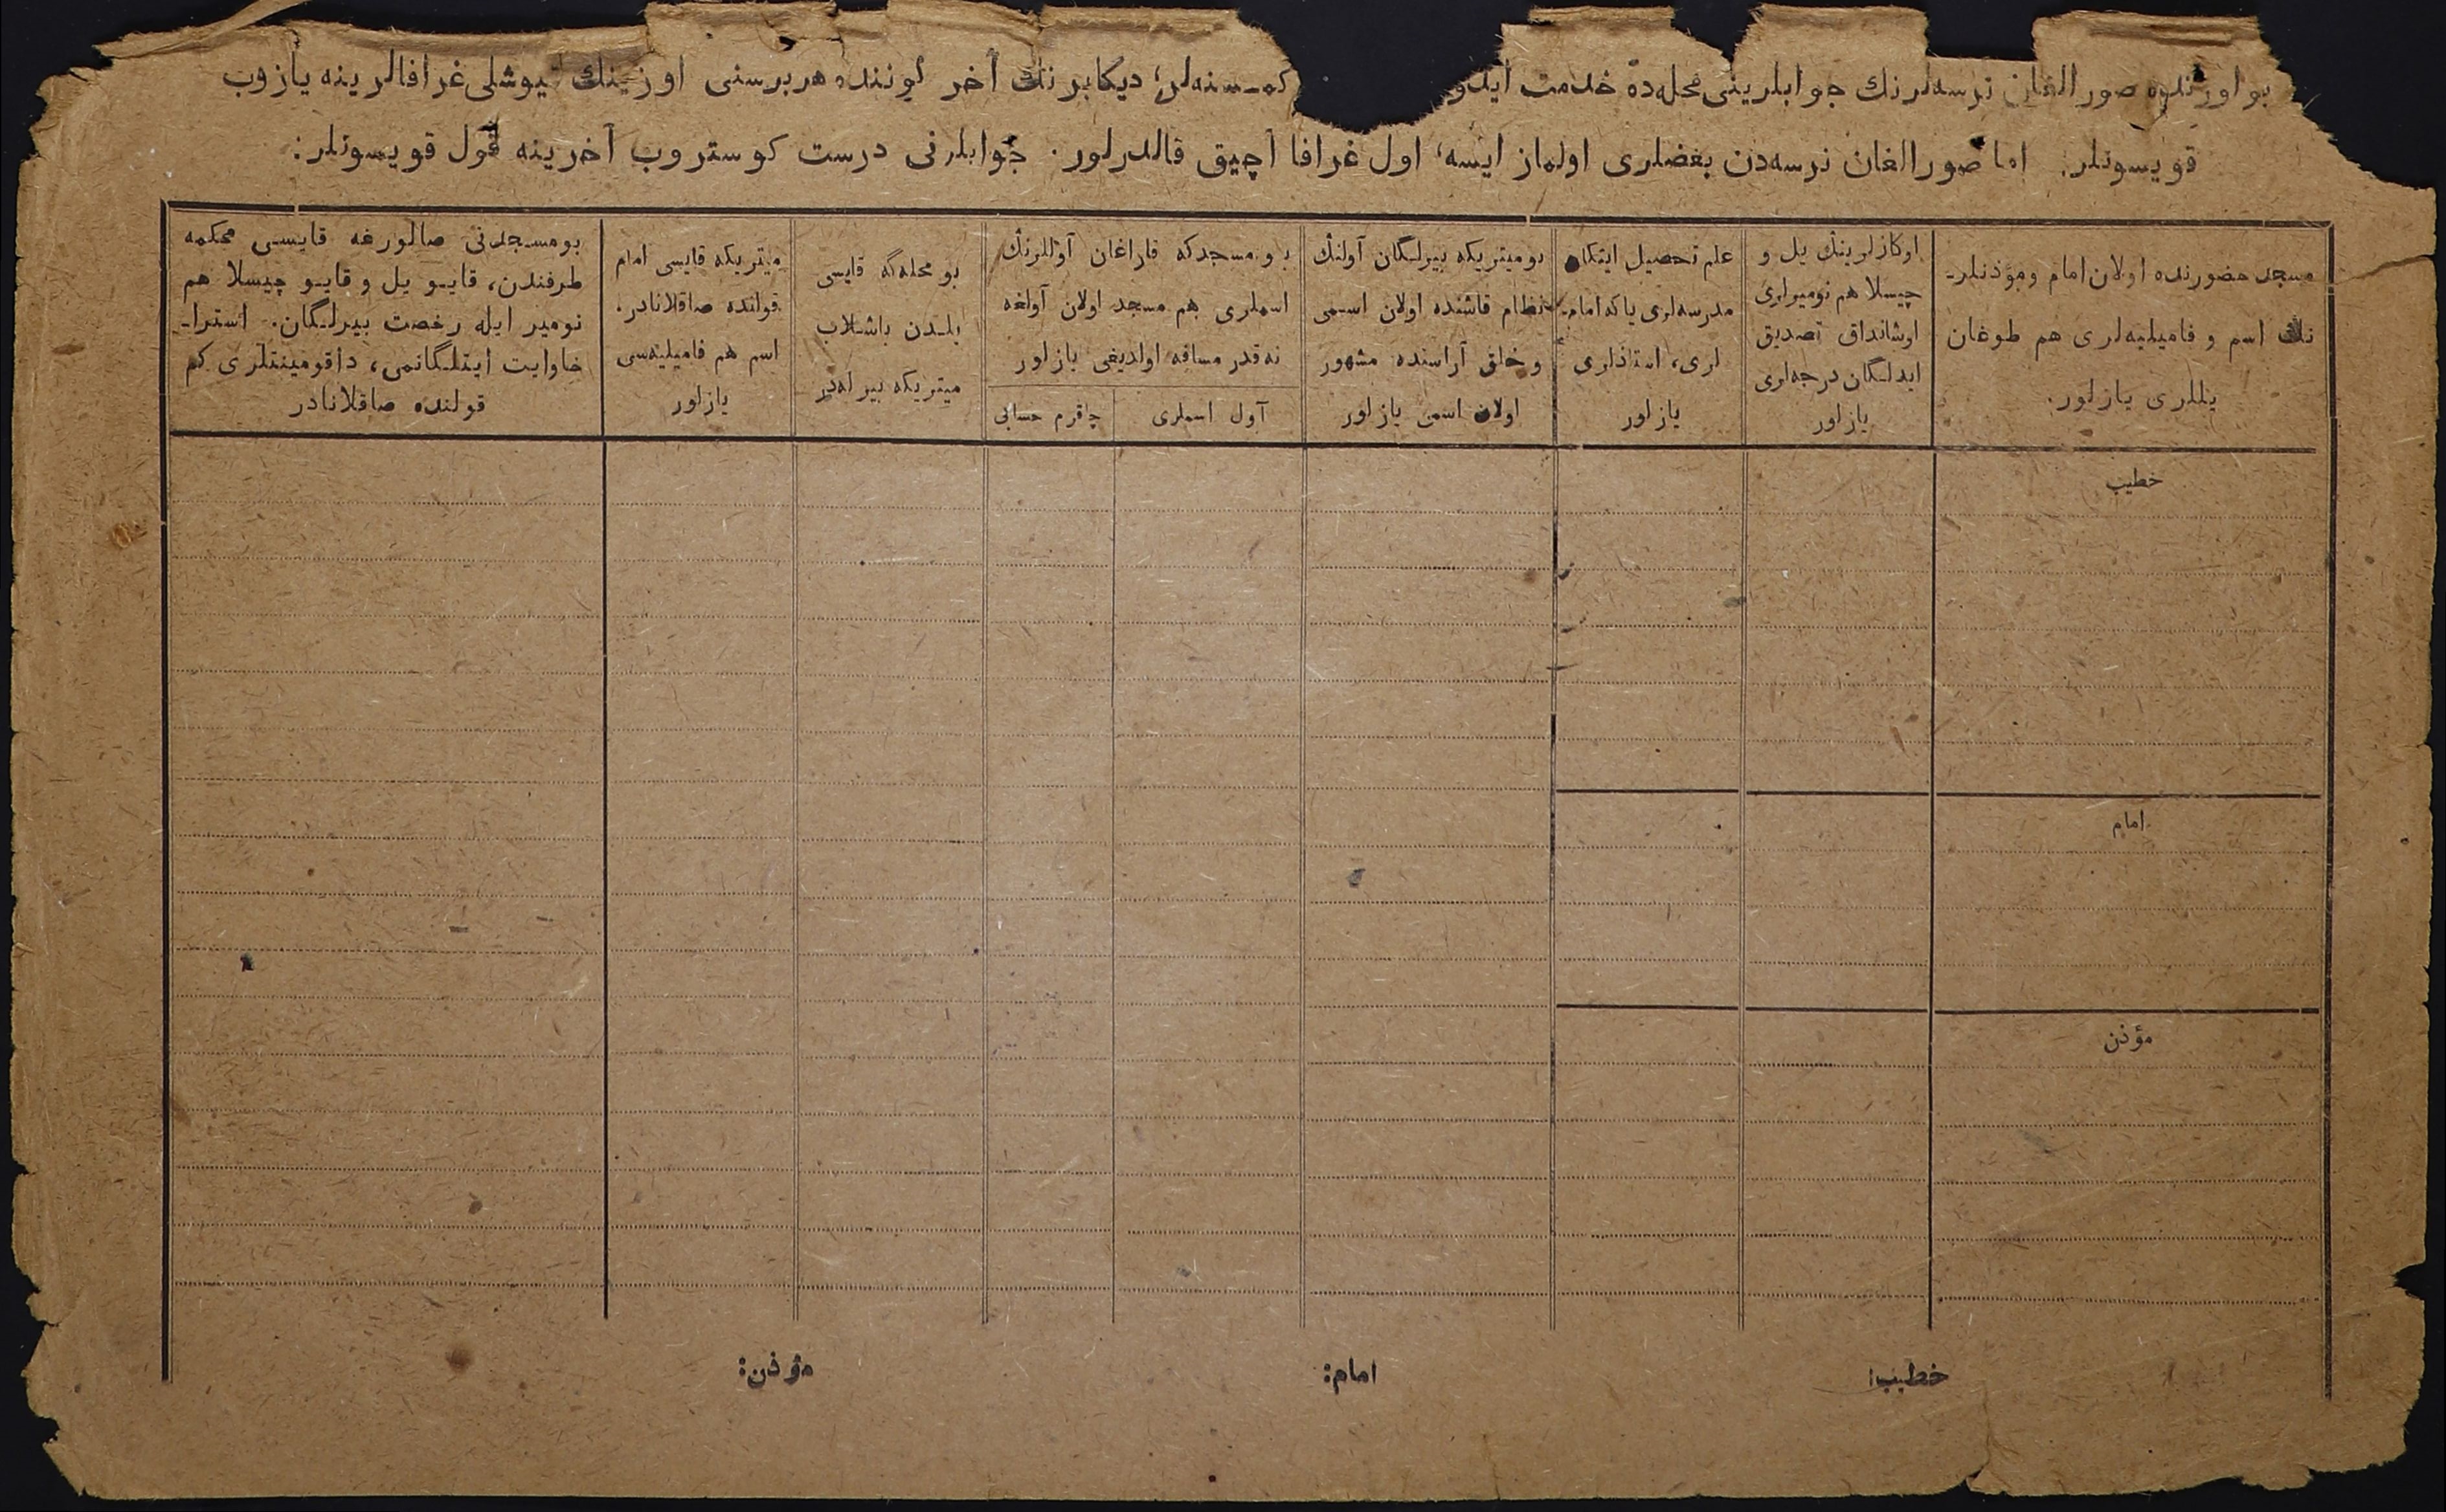 بو اورنده صورالغان نرسه‌لرنك جوابلرینی محله‌ده خدمت ایدو كمسنه‌لر؛ دیكابرنك آخر كوننده هربرسنی اوزینك تیوشلی غرافالرینه یازوب
قویسونلر. اما صورالغان نرسه‌دن بعضلری اولماز ایسه، اول غرافا آچیق قالدرلور. جوابلرنی درست كوستروب آخرینه قول قویسونلر:
مسجد حضورنده اولان امام ومؤذنلر-
نك اسم و فامیلیه‌لری هم طوغان
یللری یازلور.
اوكازلرینك یل و
چیسلا هم نومیرلری
اوشانداق تصدیق
ایدلگان درجه‌لری
یازلور
علم تحصیل ایتكان
مدرسه‌لری یاكه امام-
لری، استاذلری
یازلور
بو میتریكه بیرلگان آولنك
نظام قاشنده اولان اسمی
وخلق آراسنده مشهور
اولان اسمی یازلور
بو مسجدكه قاراغان آوللرنك
اسملری هم مسجد اولان آولغه
نه‌قدر مسافه اولدیغی یازلور
آول اسملری
چاقرم حسابی
بو محله‌گه قایسی
یلدن باشلاب
میتریكه بیرله‌در
میتریكه قایسی امام
قولنده صاقلانادر.
اسم هم فامیلیه‌سی
یازلور
بومسجدنی صالورغه قایسی محكمه
طرفندن، قایو یل و قایو چیسلا هم
نومیر ایله رخصت بیرلگان. استرا-
خاوایت ایتلگانمی، داقومینتلری كم
قولنده صاقلانادر
خطیب
امام
مؤذن
خطیب:
امام:
مؤذن: